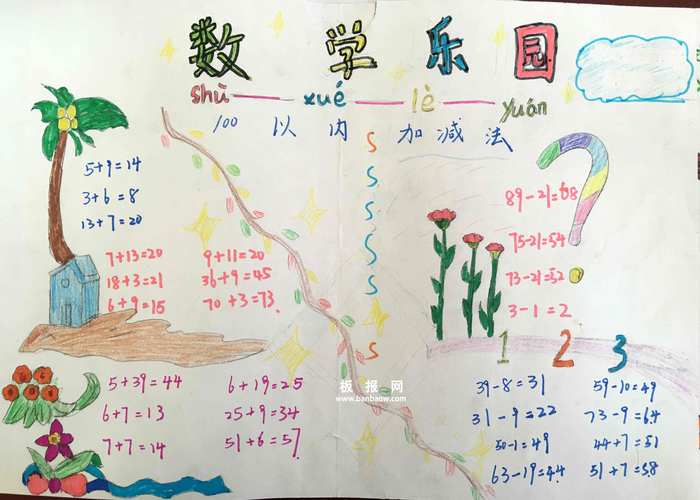 数学乐园
shū xué lè yuán
100以内加减法
5+9=14
3+6=8
13+7=20
7+13=20 9+11=20
18+3=21 36+9=45
6+9=15 70+3=73
S
S
S
S
S
S
S
89-21=68
75-21=54
73-21=52
3-1=2
1 2 3
5+39=44 6+19=25
6+7=13 25+9=34
7+7=14 51+6=57
板报网
www.banbaow.com
39-8=31 59-10=49
31-9=22 73-9=64
50-1=49 44+7=51
63-19=44 51+7=58